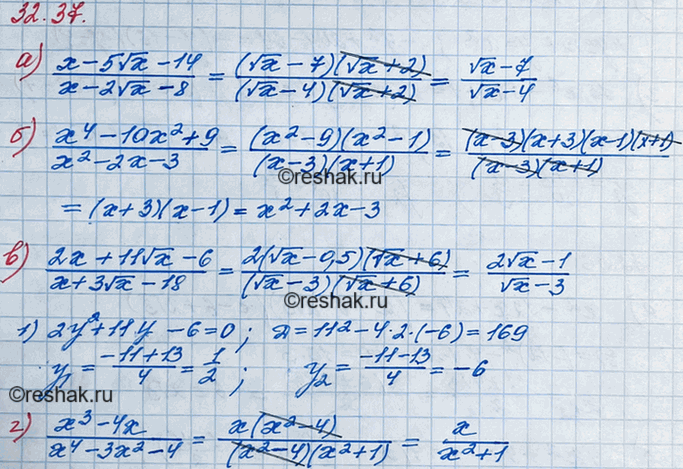 32.37.
а) (x-5√x-14)/(x-2√x-8) = ((√x-7)(√x+2))/((√x-4)(√x+2)) = (√x-7)/(√x-4)
б) (x⁴-10x²+9)/(x²-2x-3) = ((x²-9)(x²-1))/((x-3)(x+1)) = ((x-3)(x+3)(x-1)(x+1))/((x-3)(x+1))
©reshak.ru
= (x+3)(x-1) = x²+2x-3
в) (2x+11√x-6)/(x+3√x-18) = (2(√x-0,5)(√x+6))/((√x-3)(√x+6)) = (2√x-1)/(√x-3)
©reshak.ru
1) 2y²+11y-6=0; D=11²-4·2·(-6)=169
y₁ = (-11+13)/4 = 1/2; y₂ = (-11-13)/4 = -6
©reshak.ru
г) (x³-4x)/(x⁴-3x²-4) = (x(x²-4))/((x²-4)(x²+1)) = x/(x²+1)